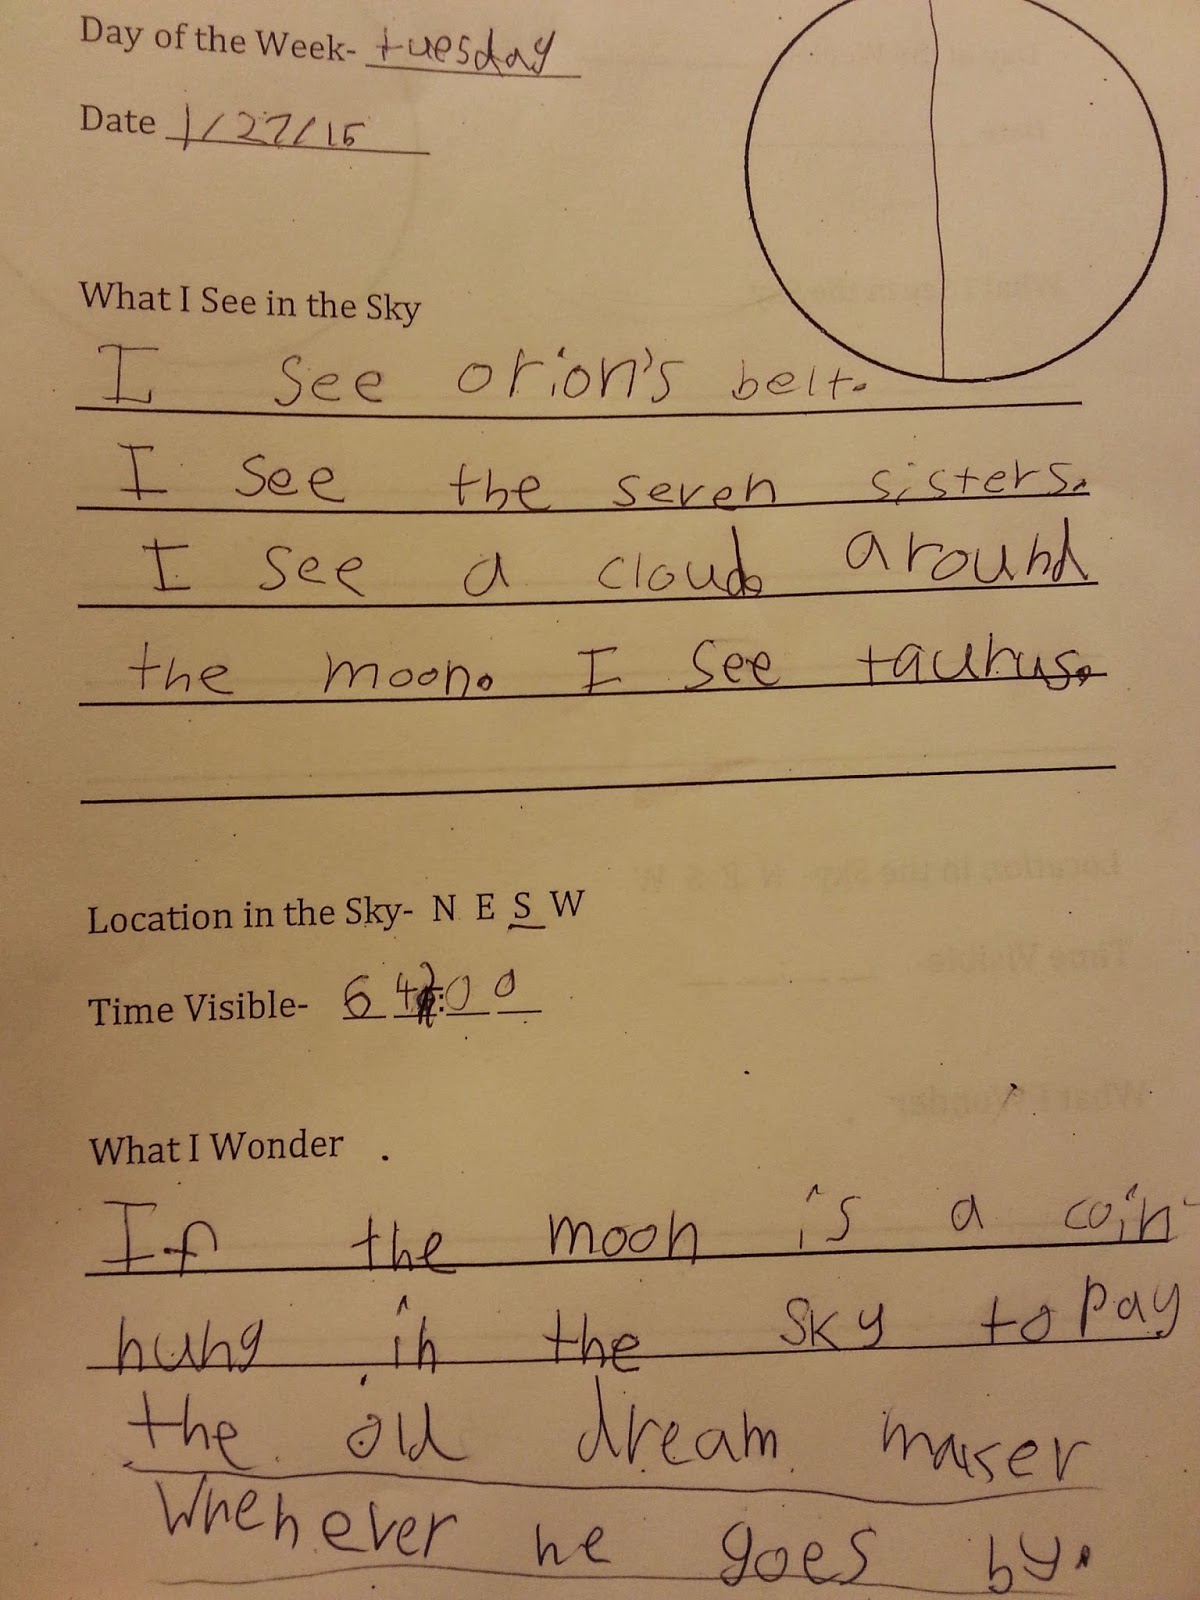 Day of the Week- tuesday
Date 1/27/15
What I See in the Sky
I see orion's belt.
I see the seven sisters.
I see a cloud around
the moon. I see taurus.
Location in the Sky- N E S W
Time Visible- 6 4:00
What I Wonder
If the moon is a coin
hung in the sky to pay
the old dream maker
whenever he goes by.